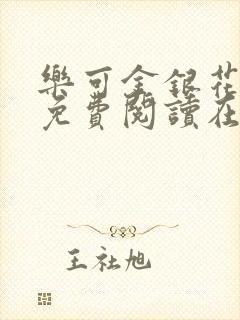 樂可金銀花
免費閱讀在
王社旭